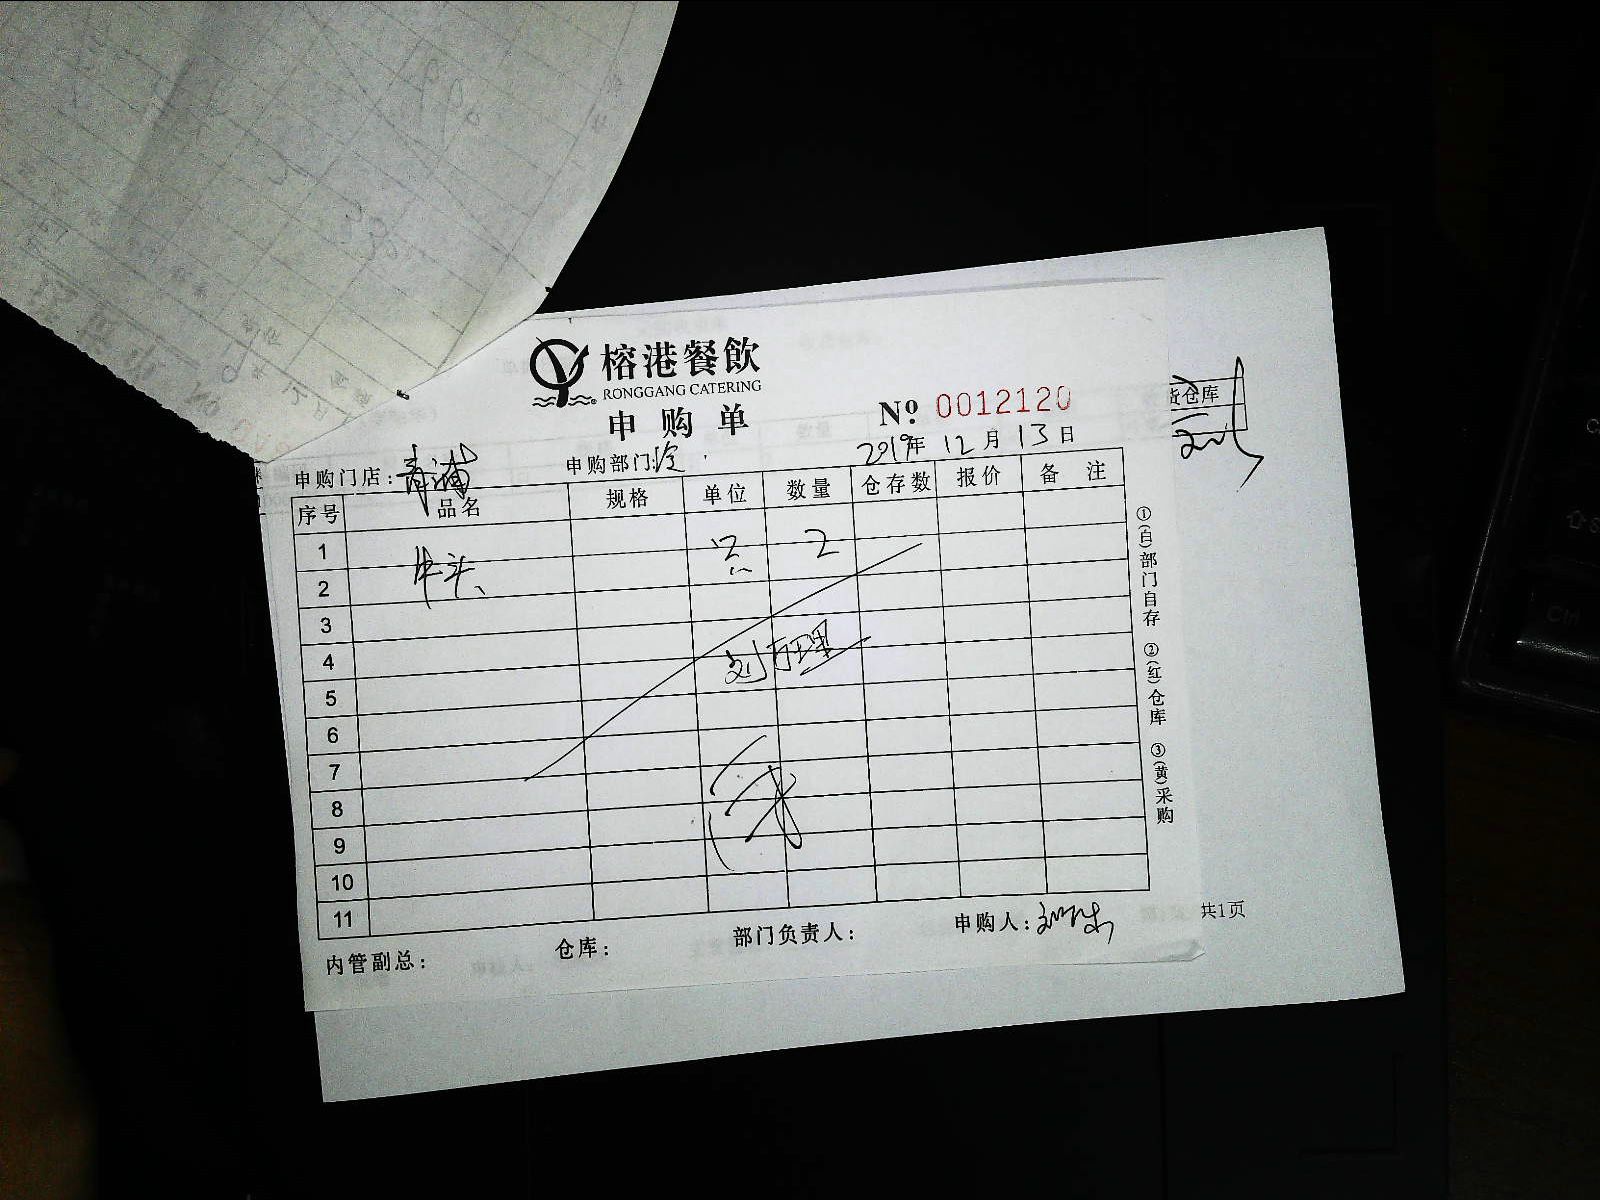 榕港餐飲
RONGGANG CATERING
申购单
№ 0012120
2019年 12月 13日
申购门店：青浦
申购部门：冷
序号 品名 规格 单位 数量 仓存数 报价 备 注
1
2 牛头 只 2
3
4
5
6
7
8
9
10
11
内管副总： 仓库： 部门负责人： 申购人：
①(白)部门自存 ②(红)仓库 ③(黄)采购
货仓库
共1页